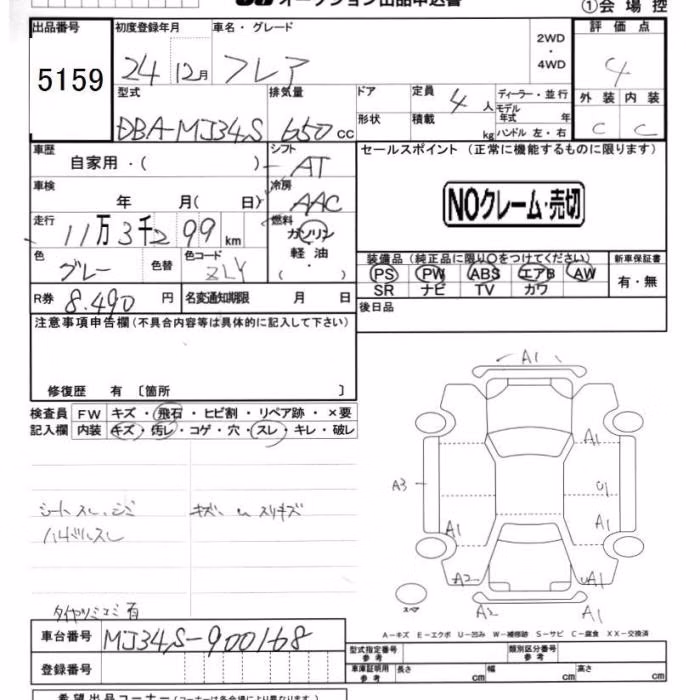 オークション出品申込書
①会場控
出品番号 初度登録年月 車名・グレード 2WD・4WD 評価点
5159 24 12月 フレア 4
型式 排気量 ドア 定員 4人 ディーラー・並行 外装 内装
DBA-MJ34S 650cc 形状 積載 kg モデル年式 年 C C
ハンドル 左・右
車歴 シフト セールスポイント (正常に機能するものに限ります)
自家用・( ) AT
車検 冷房
年 月( 日) AAC NOクレーム・売切
走行 燃料
11万3千299km ガソリン
軽油
・( ・ )
色 色替 色コード 装備品(純正品に限り○をつけてください) 新車保証書
グレー ZLY PS PW ABS エアB AW 有・無
SR ナビ TV カワ
R券 8.490円 名変通知期限 月 日 後日品
注意事項申告欄(不具合内容等は具体的に記入して下さい)
修復歴 有 〔箇所 〕
検査員 FW キズ・飛石・ヒビ割・リペア跡・×要
記入欄 内装 キズ・汚レ・コゲ・穴・スレ・キレ・破レ
A1
A1
A3 U1
A1 A1
A2 UA1
A2 A1
シートスレ、シミ キズ、 スリキズ
ハンドルスレ
スペア
タイヤツミコミ有
A-キズ E-エクボ U-凹み W-補修跡 S-サビ C-腐食 XX-交換済
車台番号 MJ34S-900168
型式指定番号 参考 類別区分番号 参考
登録番号 車庫証明用 参考 長さ cm 幅 cm 高さ cm
希望出品コーナー(コーナーは各会場により異なります)